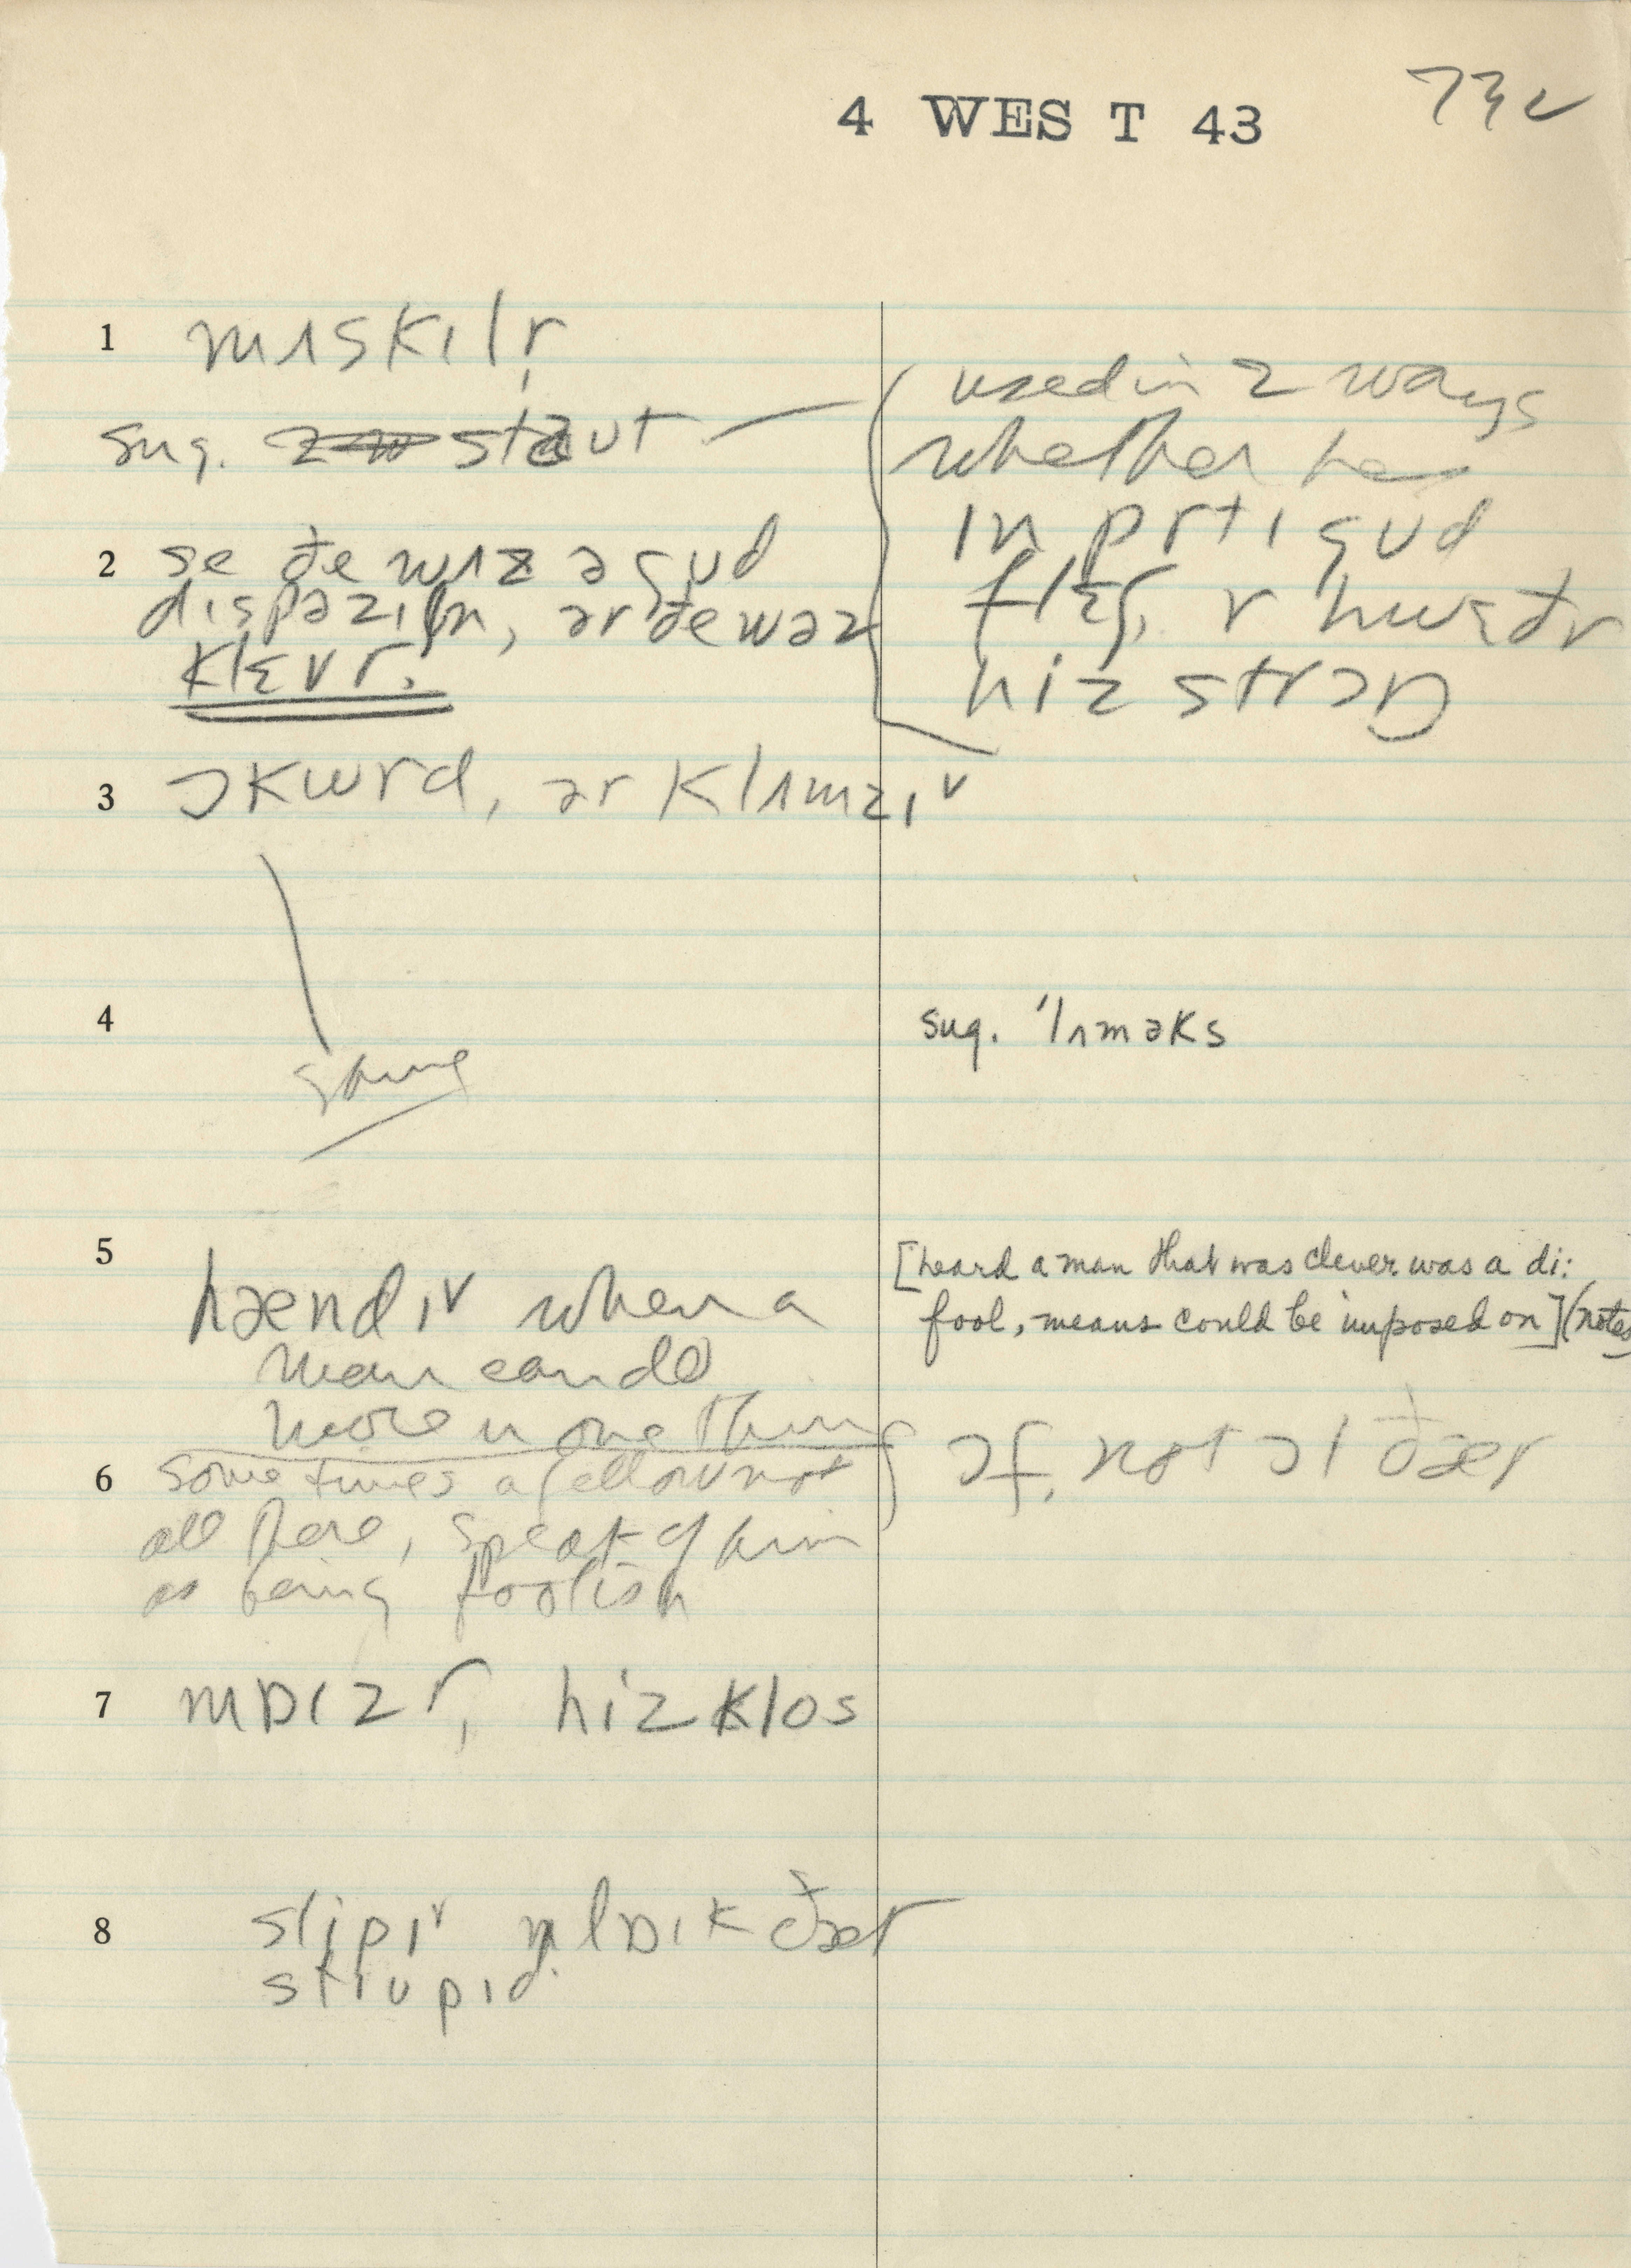 4 WEST 43
73c
1 mʌskɪlr,
sug. staut
used in 2 ways
whether he
ɪn prtɪ gud
flɛʃ, r hwɛðr
hiz strɔŋ
2 se ðe wɪz ə gud
dɪspəzɪʃn, ər ðe wəz
klɛvr.
3 ɔkwrd, ər klʌmzɪ˅
same
4 sug. 'lʌməks
5 hændɪ˅ when a
man can do
more n one thing
[heard a man that was clever was a di:
fool, means could be imposed on] (notes
6 sometimes a fellow not
all there, speak of him
as being foolish
ɔf, not ɔl ðær
7 mɒɪzr, hiz klos
8 slipɪ˅ nlɒɪk ðær
stɪupɪd.